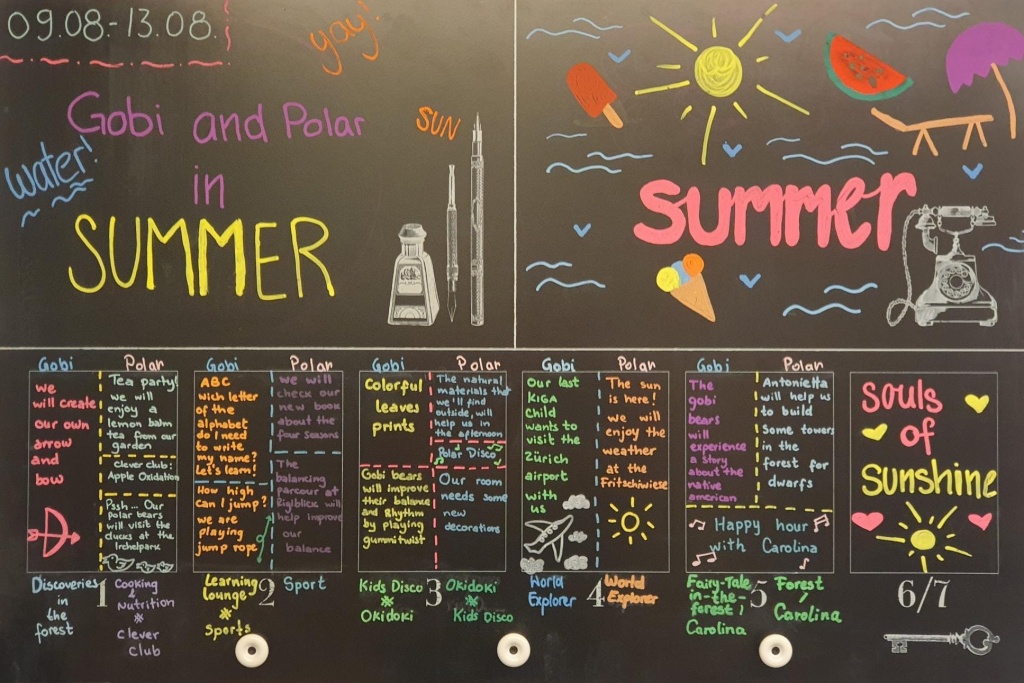 09.08.-13.08.
yay!
Gobi and Polar
in
SUMMER
water!
SUN
summer
Gobi
we
will create
our own
arrow
and
bow
Polar
Tea party!
we will
enjoy a
lemon balm
tea from our
garden
clever club:
Apple Oxidation
Pssh... Our
Polar bears
will visit the
ducks at the
Irchelpark
Discoveries
in
the
forest
1
Cooking
&
Nutrition
※
Clever
Club
Gobi
ABC
wich letter
of the
alphabet
do I need
to write
my name?
Let's learn!
How high
can I jump?
we are
playing
jump rope
Polar
we will
check our
new book
about the
four seasons
The
balancing
parcour at
Rigiblick will
help improve
our
balance
Learning
lounge
※
Sports
2
Sport
Gobi
Colorful
leaves
prints
Gobi bears
will improve
their balance
and Rhythm
by playing
gummitwist
Polar
The natural
materials that
we'll find
outside, will
help us in
the afternoon
Polar Disco
Our room
needs some
new
decorations
Kids Disco
※
Okidoki
3
Okidoki
※
Kids Disco
Gobi
Our last
KIGA
Child
wants to
visit the
Zürich
airport
with
us
Polar
The sun
is here!
we will
enjoy the
weather
at the
Fritschiwiese
World
Explorer
4
World
Explorer
Gobi
The
gobi
bears
will
experience
a story
about the
native
american
Polar
Antonietta
will help us
to build
Some towers
in the
forest for
dwarfs
Happy hour
with Carolina
Fairy-Tale
in-the-
forest /
Carolina
5
Forest
/
Carolina
souls
of
sunshine
6/7